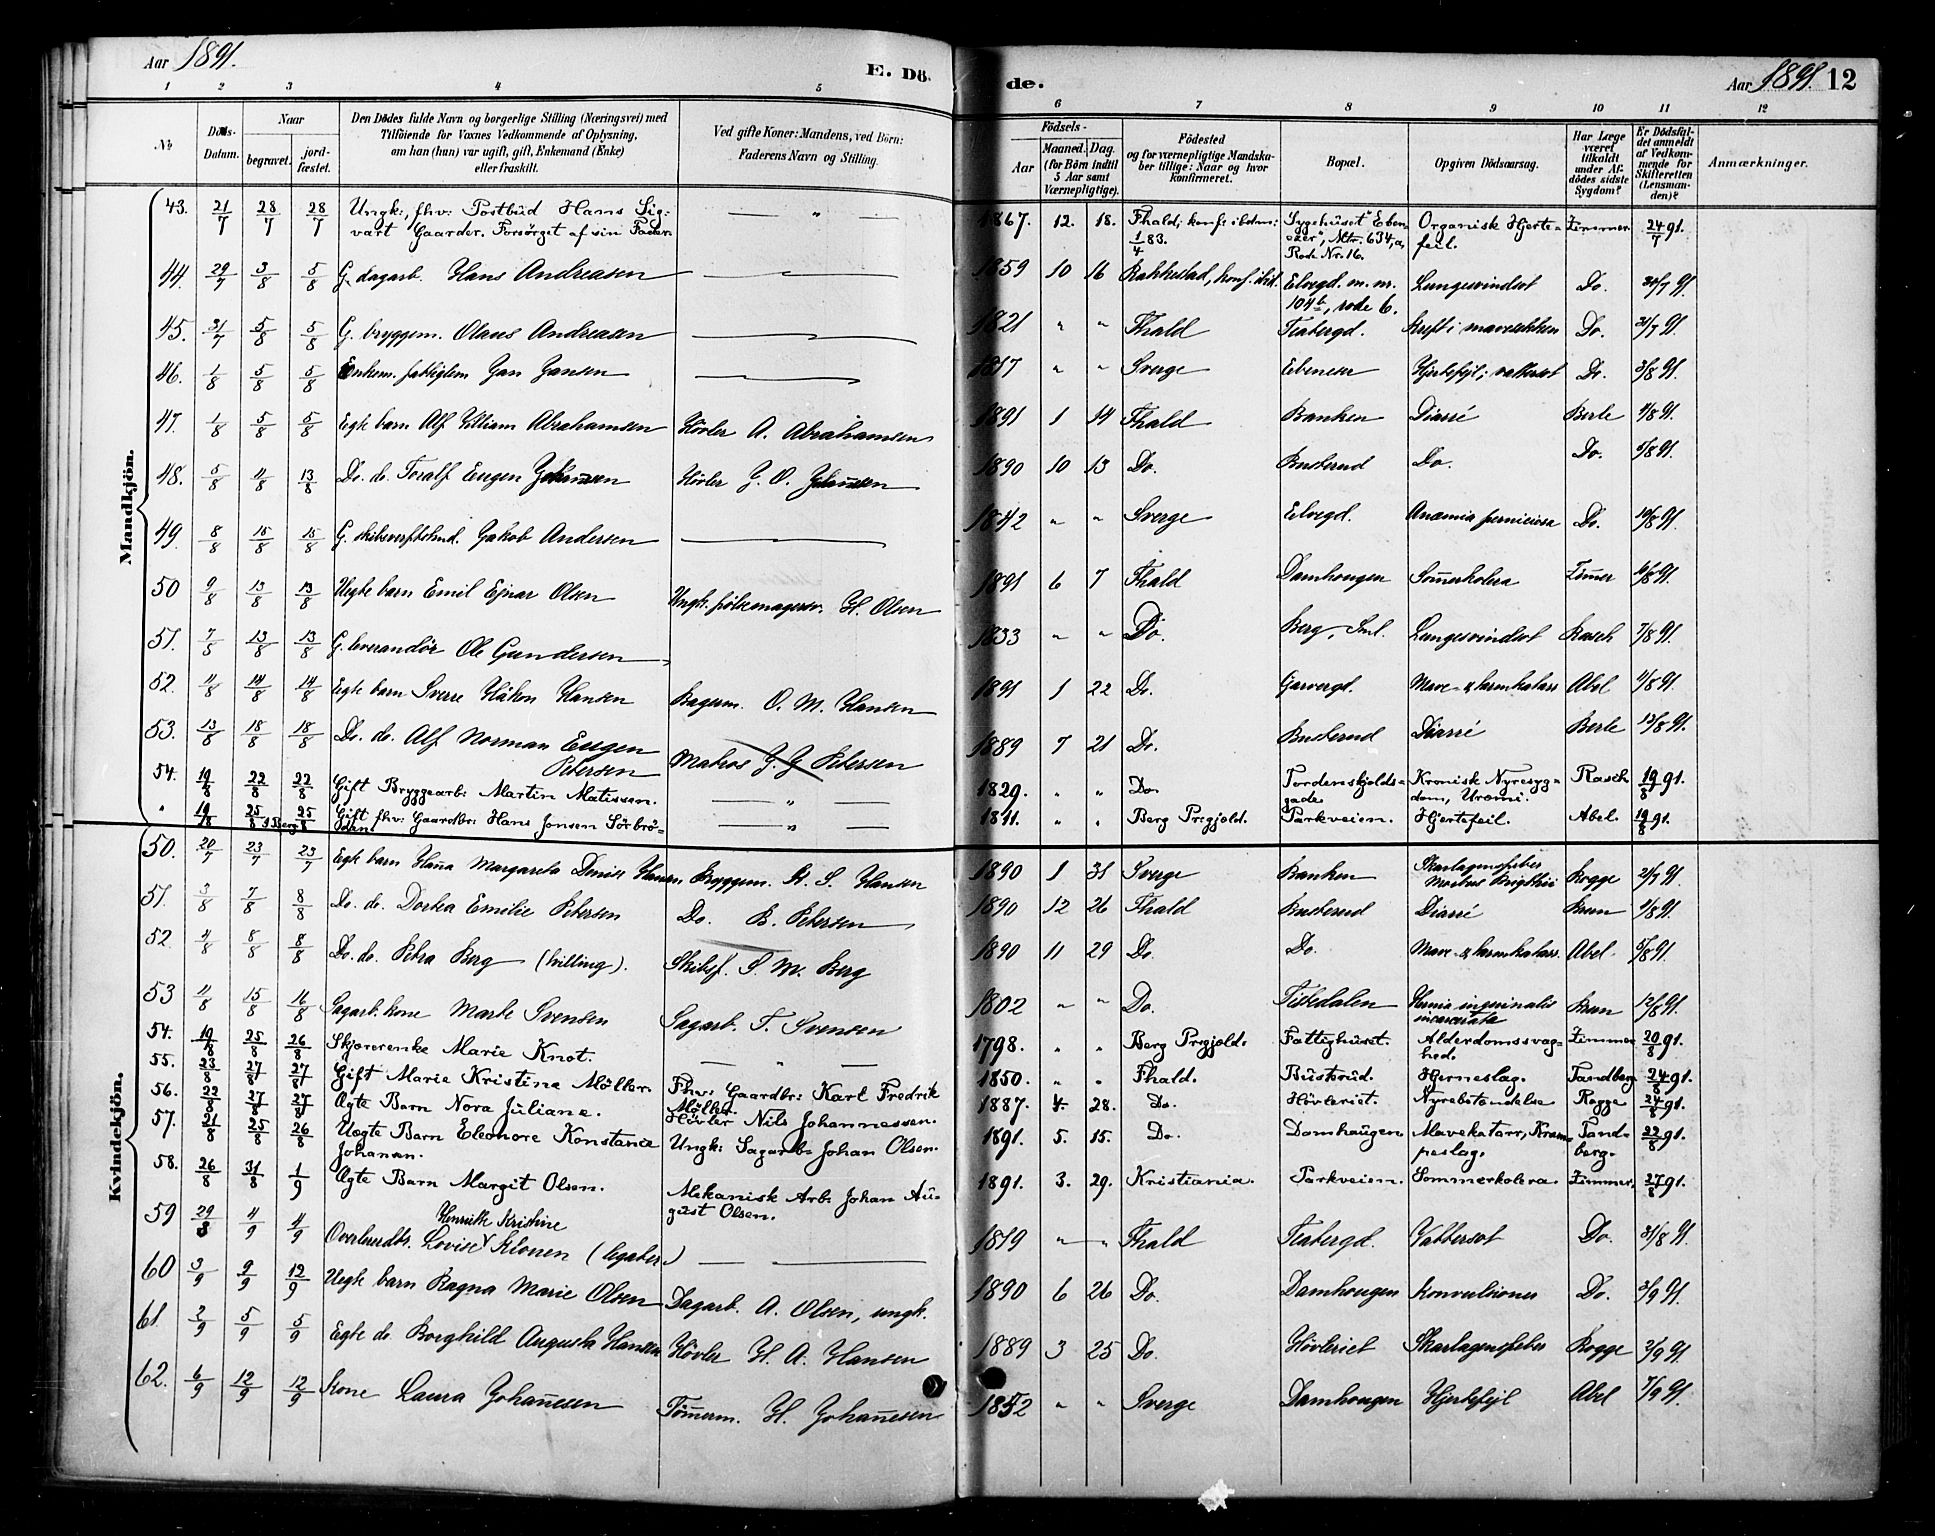 Aar 1891.
E. Dö-
de.
Aar 1891. 12
1 2 3 4 5 6 7 8 9 10 11 12
No
Döds-Datum.
Naar
begravet.
jord-fæstet.
Den Dödes fulde Navn og borgerlige Stilling (Næringsvei) med
Tilföiende for Voxnes Vedkommende af Oplysning,
om han (hun) var ugift, gift, Enkemand (Enke)
eller fraskilt.
Ved gifte Koner: Mandens, ved Börn:
Faderens Navn og Stilling.
Födsels-
Aar
Maaned. Dag.
(for Börn indtil
5 Aar samt
Værnepligtige).
Födested
og for værnepligtige Mandska-
ber tillige: Naar og hvor
konfirmeret.
Bopæl.
Opgiven Dödsaarsag.
Har Læge
været
tilkaldt
under Af-
dödes sidste
Sygdom?
Er Dödsfal-
det anmeldt
af Vedkom-
mende for
Skifteretten
(Lensman-
den)?
Anmærkninger.
Mandkjön.
43. 21/7 28/7 28/7 Ungk:, fhv: Postbud Hans Sig- — " — 1867. 12. 18. Fhald; konf: ibdm: Sygehuset "Eben- Organisk Hjerte- Zimmer. 24/7 91.
vart Gaarder. Forsörget af sin Fader. 1/4 83. ezer", Mtr. 634,a, feil.
Rode Nr. 16.
44. 29/7 3/8 5/8 G. dagarb. Hans Andreasen — 1859 10 16 Rakkestad, konf. ibid. Elvegd. m. nr. Lungesvindsot Do. 30/7 91.
104b, rode 6.
45. 31/7 5/8 5/8 G. bryggem. Olaus Andreasen — 1821 " " Fhald Teatergd. Kreft i mavesekken Do. 31/7 91.
46. 1/8 5/8 5/8 Enkem. fattiglem Jan Jansen — 1817 " " Sverge Ebeneser Hjertefejl; vattersot Do. 3/8 91.
47. 1/8 5/8 5/8 Egte barn Alf Villiam Abrahamsen Hövler A. Abrahamsen 1891 1 14 Fhald Banken Diarré Berle 1/8 91.
48. 5/8 11/8 13/8 Do. do. Toralf Eugen Johansen Hövler J. O. Johansen 1890 10 13 Do. Busterud Do. Do. 5/8 91.
49. 8/8 15/8 15/8 G. skibsverftstmd. Jakob Andersen — 1842 " " Sverge Elvegd. Anæmia perniciosa Do. 10/8 91.
50 9/8 13/8 13/8 Uegte barn Emil Ejnar Olsen Ungk. pölsemagersv. H. Olsen 1891 6 7 Fhald Damhougen Sommerkolera Zimmer 11/8 91.
51. 7/5 13/8 13/8 G. leverandör Ole Gundersen 1833 " " Do. Berg, Sml. Lungesvindsot Rasch 7/8 91.
52. 11/8 14/8 14/8 Egte barn Sverre Håkon Hansen Bagerm. O. M. Hansen 1891 1 22 Do. Garvergd. Mave- & tarmkatarr Abel 11/8 91.
53. 13/8 18/8 18/8 Do. do. Alf Norman Eugen
Petersen Matros J. J. Petersen 1889 7 21 Do. Busterud Diarré Berle 13/8 91.
54. 19/8 22/8 22/8 Gift Bryggearb: Martin Matissen. — " — 1829. " " Do. Tordenskjolds- Kronisk Nyresyg- Rasch. 19/8 91.
gade. dom, Uremi.
" 19/8 25/8 i Berg 25/8 Gift fhv: Gaardbr: Hans Jonsen Sörbrö- — " — 1811. " " Berg Prgjeld. Parkveien. Hjertefeil. Abel. 19/8 91.
den.
Kvindekjön.
50. 20/7 23/7 23/7 Egte barn Hanna Margareta Denise Hansen Bryggem. H. S. Hansen 1890 1 31 Sverge Banken Skarlagensfeber Rogge 21/7 91.
Morbus Brightii
51. 3/8 7/8 8/8 Do. do. Dortea Emilie Petersen Do. B. Petersen 1890 12 26 Fhald Busterud Diarré 4/8 91.
52. 4/8 8/8 8/8 Do. do. Petra Berg (tvilling). Skibsf. S. M. Berg 1890 11 29 Do. Do. Mave- & tarmkatarr. Abel 5/8 91.
53 11/8 15/8 16/8 Sagarb. kone Marte Svensen Sagarb. T. Svensen 1802 " " Do. Tistedalen Hernia inguinalis 12/8 91.
incarcerata
54. 19/8 25/8 26/8 Skjærerenke Marie Knot. — " — 1798. " " Berg Prgjeld. Fattighuset. Alderdomssvag- Zimmer 20/8 91.
hed.
55. 23/8 27/8 27/8 Gift Marie Kristine Möller. Fhv: Gaardbr: Karl Fredrik 1850. " " Fhald. Busterud. Hjerneslag. Tandberg. 24/8 91.
Möller.
56. 22/8 27/8 27/8 Ægte Barn Nora Juliane. Hövler Nils Johannessen. 1887. 4. 28. Do. Hövleriet. Nyrebetændelse Rogge 24/8 91.
57. 21/8 25/8 26/8 Uægte Barn Eleonore Konstance Ungk: Sagarb: Johan Olsen. 1891. 5. 15. Do. Damhaugen Mavekatarr, Kram- Tand- 22/8 91.
Johansen. peslag. berg.
58. 26/8 31/8 1/9 Ægte Barn Margit Olsen. Mekanisk Arb: Johan Au- 1891. 3. 29. Kristiania. Parkveien. Sommerkolera. Zimmer. 27/8 91.
gust Olsen.
59 29/8 4/9 4/9 Henriette Kristine
Overlærerdtr. Lovise Klouen (legater) — 1819 " " Fhald Teatergd. Vattersot Do. 31/8 91.
60 3/9 9/9 12/9 Uegte barn Ragna Marie Olsen Dagarb. A. Olsen, ungk. 1890 6 26 Do. Damhougen Konvulsioner Do. 3/9 91.
61. 2/9 5/9 5/9 Egte do. Borghild Augusta Hansen Hövler H. A. Hansen 1889 3 25 Do. Hövleriet Skarlagensfeber Rogge 2/9 91.
62. 6/9 12/9 12/9 Kone Laura Johannesen Tömmerm. H. Johannesen 1852 " " Sverge Damhougen Hjertefejl Abel 7/9 91.